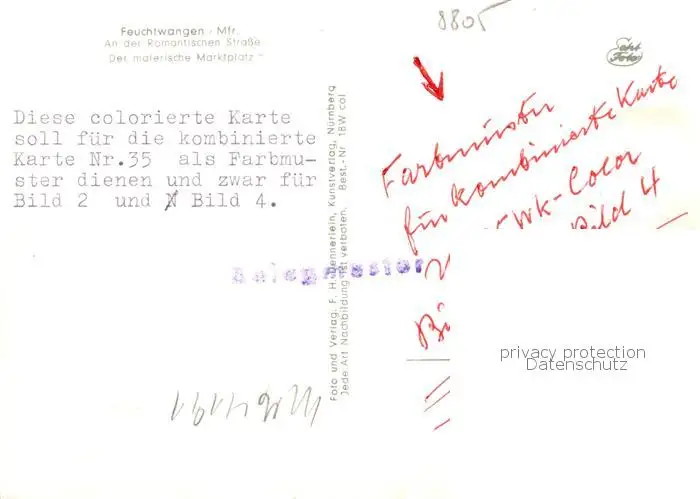 8805
Feuchtwangen / Mfr.
An der Romantischen Straße
Der malerische Marktplatz
Foto
Diese colorierte Karte
soll für die kombinierte
Karte Nr.35 als Farbmu-
ster dienen und zwar für
Bild 2 und Bild 4.
Foto und Verlag, F. H. Dennerlein, Kunstverlag, Nürnberg
Jede Art Nachbildung ist verboten. Best.-Nr 18W col
Farbmuster
für kombinierte Karte
WK-Color
Bild 4
Belegmuster
privacy protection
Datenschutz